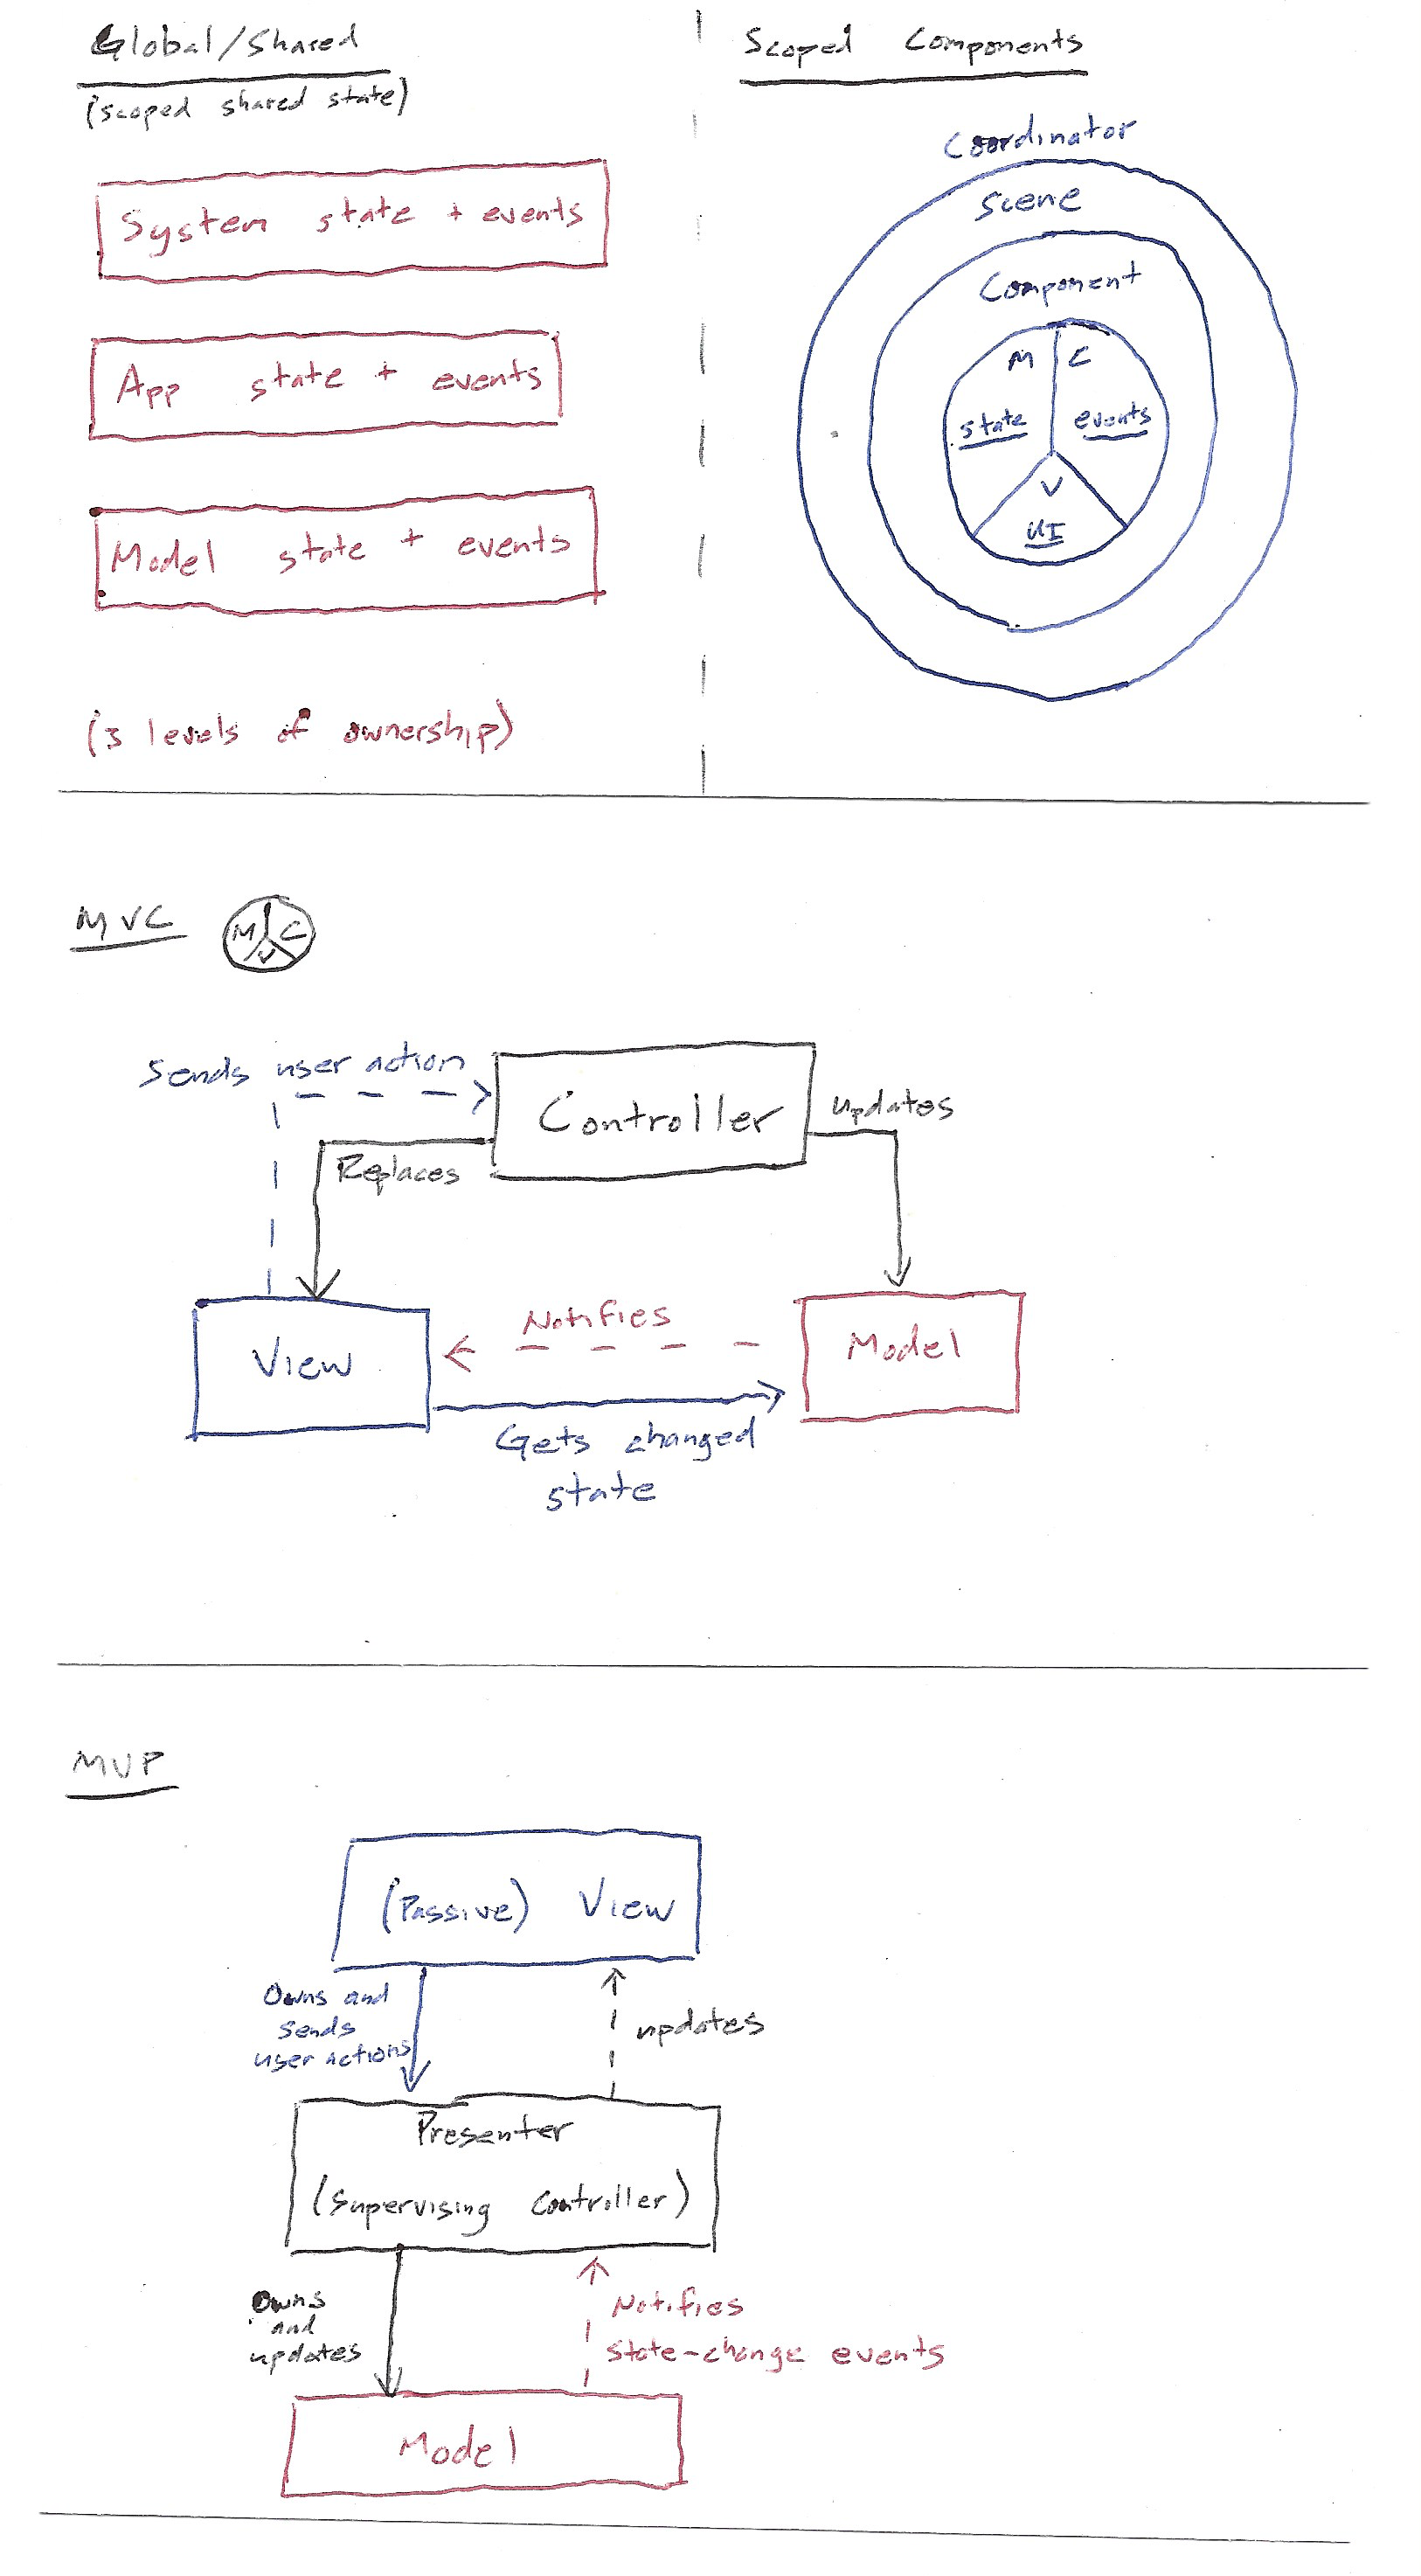 Global/Shared
(scoped shared state)
System state + events
App state + events
Model state + events
(3 levels of ownership)
Scoped Components
Coordinator
Scene
Component
M C
state events
V
UI
MVC
M C
V
Sends user action
Controller
updates
Replaces
View
Notifies
Model
Gets changed
state
MVP
(Passive) View
Owns and
sends
user actions
updates
Presenter
(Supervising Controller)
Owns
and
updates
Notifies
state-change events
Model